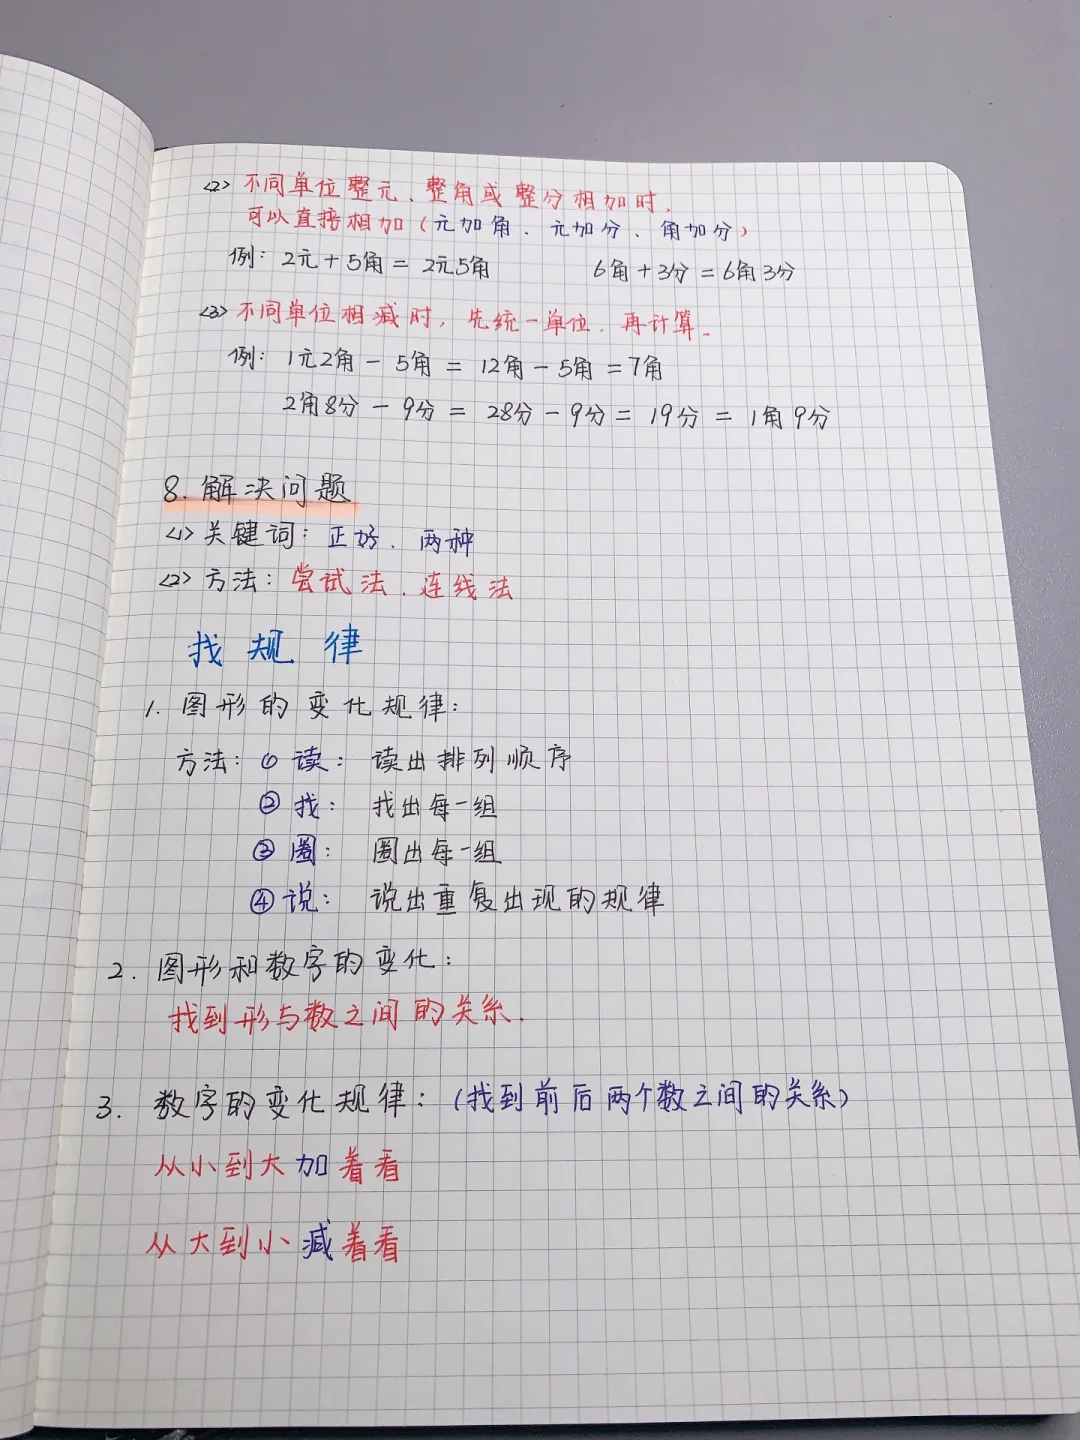 <2> 不同单位整元、整角或整分相加时,
可以直接相加(元加角、元加分、角加分)
例: 2元+5角=2元5角 6角+3分=6角3分
<3> 不同单位相减时, 先统一单位, 再计算.
例: 1元2角-5角=12角-5角=7角
2角8分-9分=28分-9分=19分=1角9分
8. 解决问题
<1> 关键词: 正好、两种
<2> 方法: 尝试法、连线法
找规律
1. 图形的变化规律:
方法: ① 读: 读出排列顺序
② 找: 找出每一组
③ 圈: 圈出每一组
④ 说: 说出重复出现的规律
2. 图形和数字的变化:
找到形与数之间的关系.
3. 数字的变化规律: (找到前后两个数之间的关系)
从小到大加着看
从大到小减着看